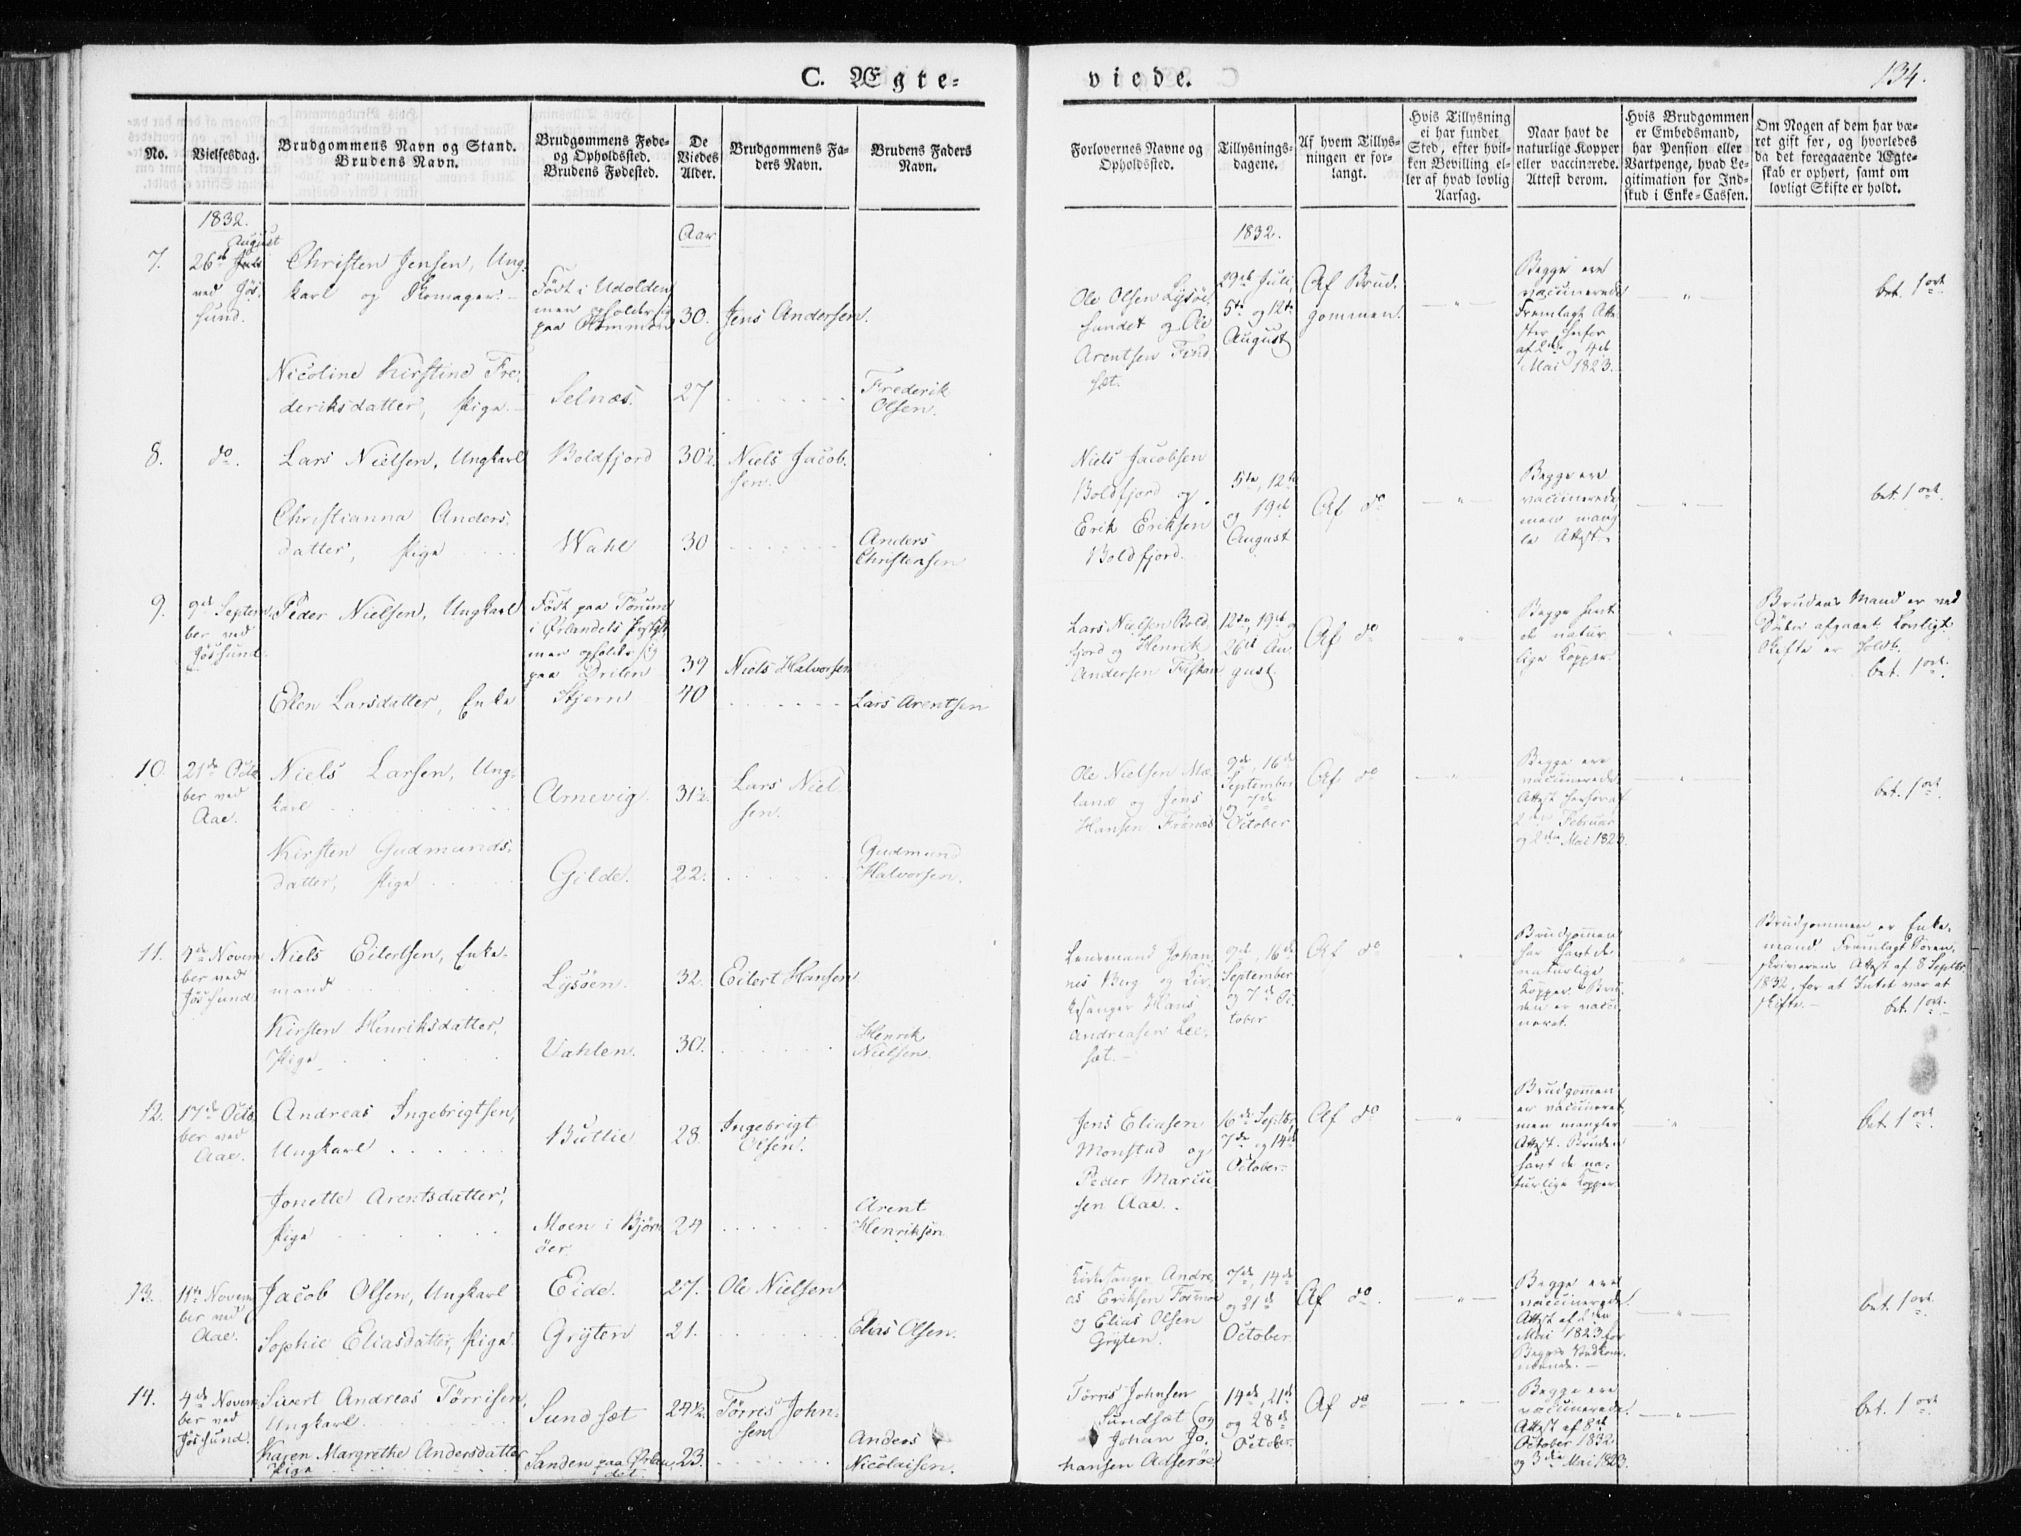 C. Ægte=
viede.
134.
No.
Vielsesdag.
Brudgommens Navn og Stand.
Brudens Navn.
Brudgommens Føde-
og Opholdssted.
Brudens Fødested.
De
Viedes
Alder.
Brudgommens Fa-
ders Navn.
Brudens Faders
Navn.
Forlovernes Navne og
Opholdssted.
Tillysnings-
dagene.
Af hvem Tillys-
ningen er for-
langt.
Hvis Tillysning
ei har fundet
Sted, efter hvil-
ken Bevilling el-
ler af hvad lovlig
Aarsag.
Naar havt de
naturlige Kopper
eller vaccinerede.
Attest derom.
Hvis Brudgommen
er Embedsmand,
har Pension eller
Vartpenge, hvad Le-
gitimation for Ind-
skud i Enke-Cassen.
Om Nogen af dem har væ-
ret gift før, og hvorledes
da det foregaaende Ægte-
skab er ophørt, samt om
lovligt Skifte er holdt.
1832.
Aar
1832.
7.
August
26de Juli
ved Jøs-
sund.
Christen Jensen, Ung-
karl og Skomager.
Født i Udolden
men opholder sig
paa
30.
Jens Andersen.
Ole Olsen Lysøe
sundet og Ole
Arentsen Find
sæt.
29de Juli,
5te og 12te
August
Af Brud-
gommen.
Begge ere
vaccinerede
Fremlagt Atte
ster herfor
af 2de og 4de
Mai 1823.
bet. 1 ort.
Nicoline Kirstine Fre-
deriksdatter, Pige.
Selnæs.
27
Frederik
Olsen.
8.
do.
Lars Nielsen, Ungkarl
Boldfjord
30½
Niels Jacob-
sen.
Niels Jacobsen
Boldfjord og
Erik Eriksen
Boldfjord.
5te, 12te
og 19de
August
Af do
Begge ere
vaccinerede
men mang-
le Attest.
bet. 1 ort.
Christianna Anders-
datter, Pige
Wahl
30
Anders
Christensen
9.
9de Septem-
ber ved
Jøssund.
Peder Nielsen, Ungkarl
Født paa Tørum
i Ørlandets Prstgld
men opholder sig
paa Drilen
39
Niels Halvorsen
Lars Nielsen Bold
fjord og Henrik
Andersen
12te, 19de og
26de Au
gust.
Af do
Begge havt
de natur
lige Kopper.
Brudens Mand er ved
Døden afgaaet. Lovligt
Skifte er holdt.
bet. 1 ort.
Ellen Larsdatter, Enke
Stjern
40
Lars Arentsen
10.
21de Octo
ber ved
Aae.
Niels Larsen, Ung-
karl
Arnevig.
31½.
Lars Niel
sen.
Ole Nielsen Mæ-
land og Jens
Hansen Frønæs
9de, 16de
September
og 7de
October
Af do
Begge ere
vaccinerede
Attest herfor af
2den Februar
og 2den Mai 1823.
bet. 1 ort.
Kirsten Gudmunds-
datter, Pige
Gilde.
22.
Gudmund
Halvorsen.
11.
4de Novem
ber ved
Jøssund.
Niels Eilertsen, Enke-
mand
Lysøen.
32.
Eilert Hansen
Lensmand Johan
nis Berg og Kir-
kesanger Hans
Andreasen Lee-
sæt.
9de, 16de
September
og 7de Oc
tober
Af do
Brudgommen
har havt de
naturlige
Kopper. Bru
den er vacci
neret.
Brudgommen er Enke-
mand Fremlagt Soren-
skriverens Attest af 8 Septbr.
1832, for at Intet var at
skifte.
bet. 1 ort.
Kirsten Henriksdatter,
Pige
Vahlen.
30.
Henrik
Nielsen.
12.
17de Octo
ber ved
Aae.
Andreas Ingebrigtsen,
Ungkarl
Buttie
28
Ingebrigt
Olsen.
Jens Eliasen
Monstad og
Peder Marcu
sen Aae.
16de Septbr,
7de og 14de
October
Af do
Brudgommen
er vaccineret
men mangler
Attest. Bruden
havt de na-
turlige Kopper.
bet. 1 ort.
Jonette Arentsdatter,
Pige
Moen i Bjørn
øer.
24
Arent
Henriksen.
13.
11te Novem
ber ved
Aae.
Jacob Olsen, Ungkarl
Eide.
27.
Ole Nielsen
Kirkesanger Andre
as Eriksen
og Elias Olsen
Grÿten.
7de, 14de
og 21de
October
Af do.
Begge ere
vaccinerede.
Attest af 3den
Mai 1823 for
Begges Vedkom-
mende.
bet. 1 ort.
Sophie Eliasdatter, Pige
Grÿten
21.
Elias Olsen.
14.
4de Novem
ber ved
Jøssund.
Sivert Andreas Tørrisen,
Ungkarl
Sundsæt
24½.
Tørris John-
sen
Tørris Johnsen
Sundsæt og
Johan Jo-
hansen Adserøe
14de, 21de
og 28de
October.
Af do
Begge ere
vaccinerede.
Attest af 8de
October 1832
og 3die Mai 1823.
bet. 1 ort.
Karen Margrethe Andersdatter
Pige
Sanden paa Ørlan-
det
23.
Anders
Nicolaisen.